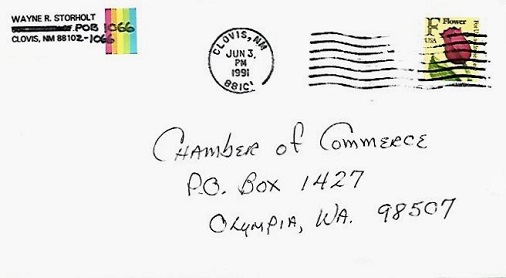 WAYNE R. STORHOLT
POB 1066
CLOVIS, NM 88102-1066
CLOVIS, NM
JUN 3,
PM
1991
88101
F Flower
USA
Chamber of Commerce
P.O. Box 1427
Olympia, WA. 98507